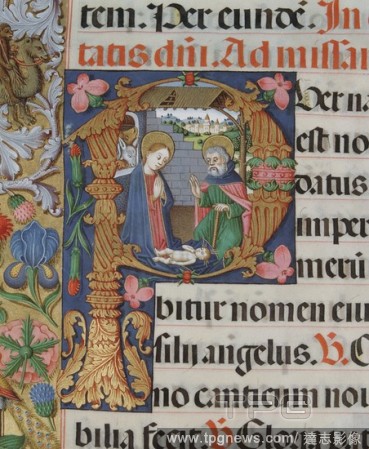 tem. Per eundē. In
tatis dñi. Ad missa
Puer na
est no
datus
imper
merū
bitur nomen eiu
filij angelus. V. C
no canticum nou
bilia fecit. V. Gloria
TPG
www.tpgnews.com/達志影像